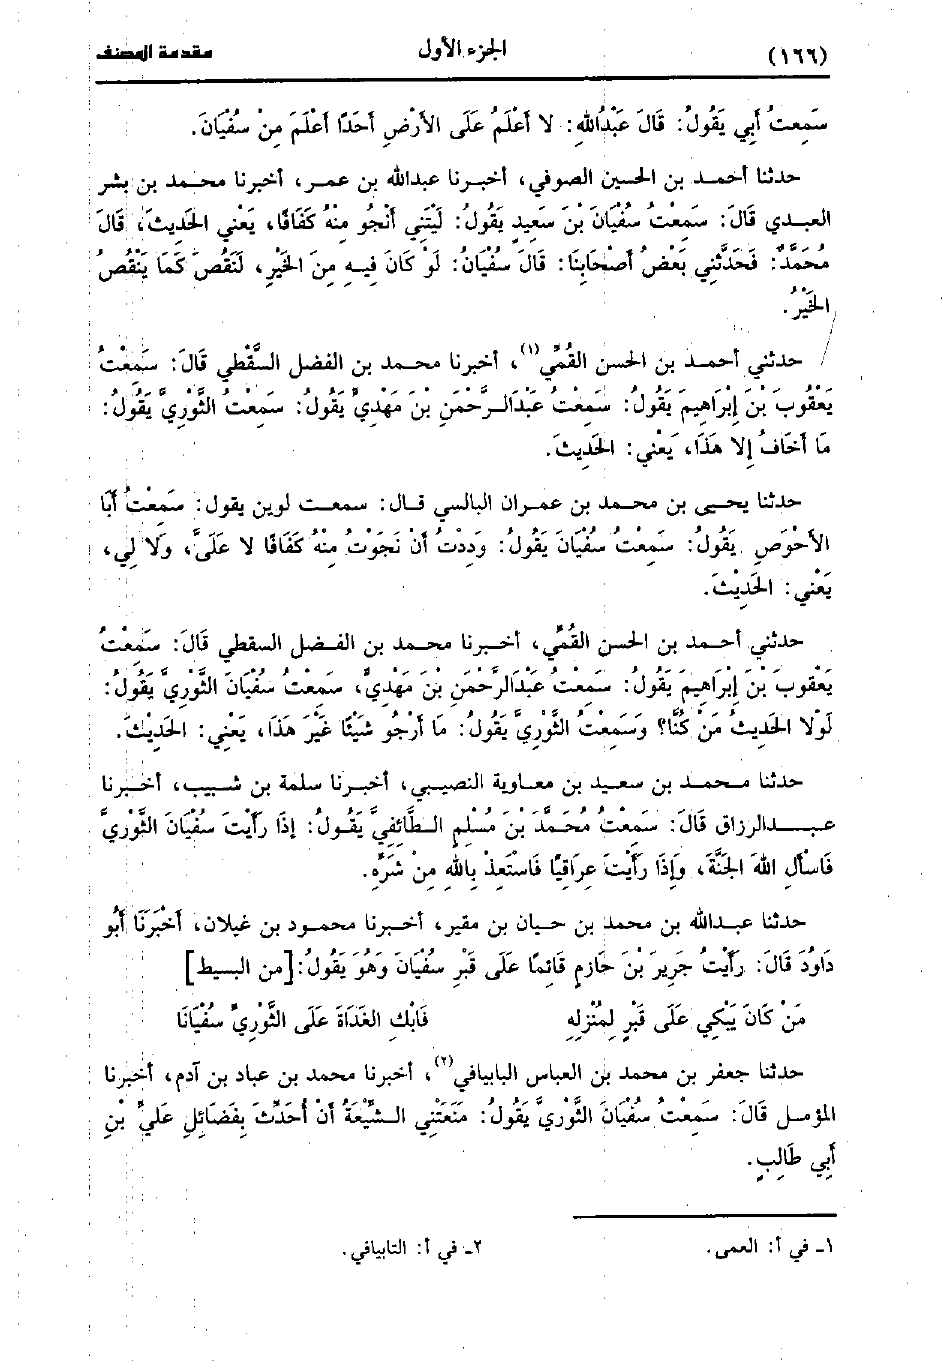 (١٦٦) الجزء الأول مقدمة المصنف
سَمِعتُ أَبي يَقُولُ: قَالَ عَبْدُاللهِ: لا أعْلَمُ عَلَى الأرْضِ أحَدًا أعْلَمَ مِنْ سُفْيَانَ.
حدثنا أحمد بن الحسين الصوفي، أخبرنا عبدالله بن عمر، أخبرنا محمد بن بشر
العبدي قَالَ: سَمعْتُ سُفْيَانَ بْنَ سَعيد يَقُولُ: لَيْتَنِي أنْجُو منْهُ كَفَافًا، يَعْنِي الحَديثَ، قَالَ
مُحَمَّدٌ: فَحَدَّثَنِي بَعْضُ أصْحَابِنَا: قَالَ سُفْيَانُ: لَوْ كَانَ فِيه مِنَ الخَيْرِ، لَنَقُصَ كَمَا يَنْقُصُ
الخَيْرُ.
حدثني أحمد بن الحسن القُمِّي(١)، أخبرنا محمد بن الفضل السَّقَطي قَالَ: سَمَعْتُ
يَعْقُوبَ بْنَ إبْرَاهِيمَ يَقُولُ: سَمعْتُ عَبْدَالرَّحْمَنِ بْنَ مَهْدِيٍّ يَقُولُ: سَمعْتُ الثَّوْرِيَّ يَقُولُ:
مَا أخَافُ إلا هَذَا، يَعْنِي: الحَديثَ.
حدثنا يحيى بن محمد بن عمران البالسي قال: سمعت لوين يقول: سَمعْتُ أبَا
الأحْوَصِ يَقُولُ: سَمعْتُ سُفْيَانَ يَقُولُ: وَددْتُ أنْ نَجَوْتُ منْهُ كَفَافًا لا عَلَيَّ، وَلا لِي،
يَعْنِي: الحَديْثَ.
حدثني أحمد بن الحسن القُمِّي، أخبرنا محمد بن الفضل السقطي قَالَ: سَمَعْتُ
يَعْقُوبَ بْنَ إبْرَاهِيمَ يَقُولُ: سَمعْتُ عَبْدَالرَّحْمَنِ بْنَ مَهْدِيٍّ، سَمِعْتُ سُفْيَانَ الثَّوْرِيَّ يَقُولُ:
لَوْلا الحَديثُ مَنْ كُنَّا؟ وَسَمِعْتُ الثَّوْرِيَّ يَقُولُ: مَا أرْجُو شَيْئًا غَيْرَ هَذَا، يَعْنِي: الحَديْثَ.
حدثنا محمد بن سعيد بن معاوية النصيبي، أخبرنا سلمة بن شبيب، أخبرنا
عبدالرزاق قَالَ: سَمعْتُ مُحَمَّدَ بْنَ مُسْلمِ الطَّائِفِيَّ يَقُولُ: إذَا رَأيْتَ سُفْيَانَ الثَّوْرِيَّ
فَاسْألِ اللهَ الجَنَّةَ، وَإذَا رَأيْتَ عِرَاقيًّا فَاسْتَعِذْ باللهِ مِنْ شَرِّهِ.
حدثنا عبدالله بن محمد بن حيان بن مقير، أخبرنا محمود بن غيلان، أخْبَرَنَا أبُو
دَاوُدَ قَالَ: رَأيْتُ جَرِيرَ بْنَ حَازِمٍ قَائمًا عَلَى قَبْرِ سُفْيَانَ وَهُوَ يَقُولُ: [من البسيط]
مَنْ كَانَ يَبْكِي عَلَى قَبْرٍ لِمُنْزِلِهِ فَابْكِ الغَدَاةَ عَلَى الثَّوْرِيِّ سُفْيَانَا
حدثنا جعفر بن محمد بن العباس البابيافي(٢)، أخبرنا محمد بن عباد بن آدم، أخبرنا
المؤمل قَالَ: سَمعْتُ سُفْيَانَ الثَّوْرِيَّ يَقُولُ: مَنَعَتْنِي الشِّيْعَةُ أنْ أُحَدِّثَ بِفَضَائِلِ عَلِيِّ بْنِ
أبِي طَالِبٍ.
١ـ في أ: العمى. ٢ـ في أ: التابيافي.